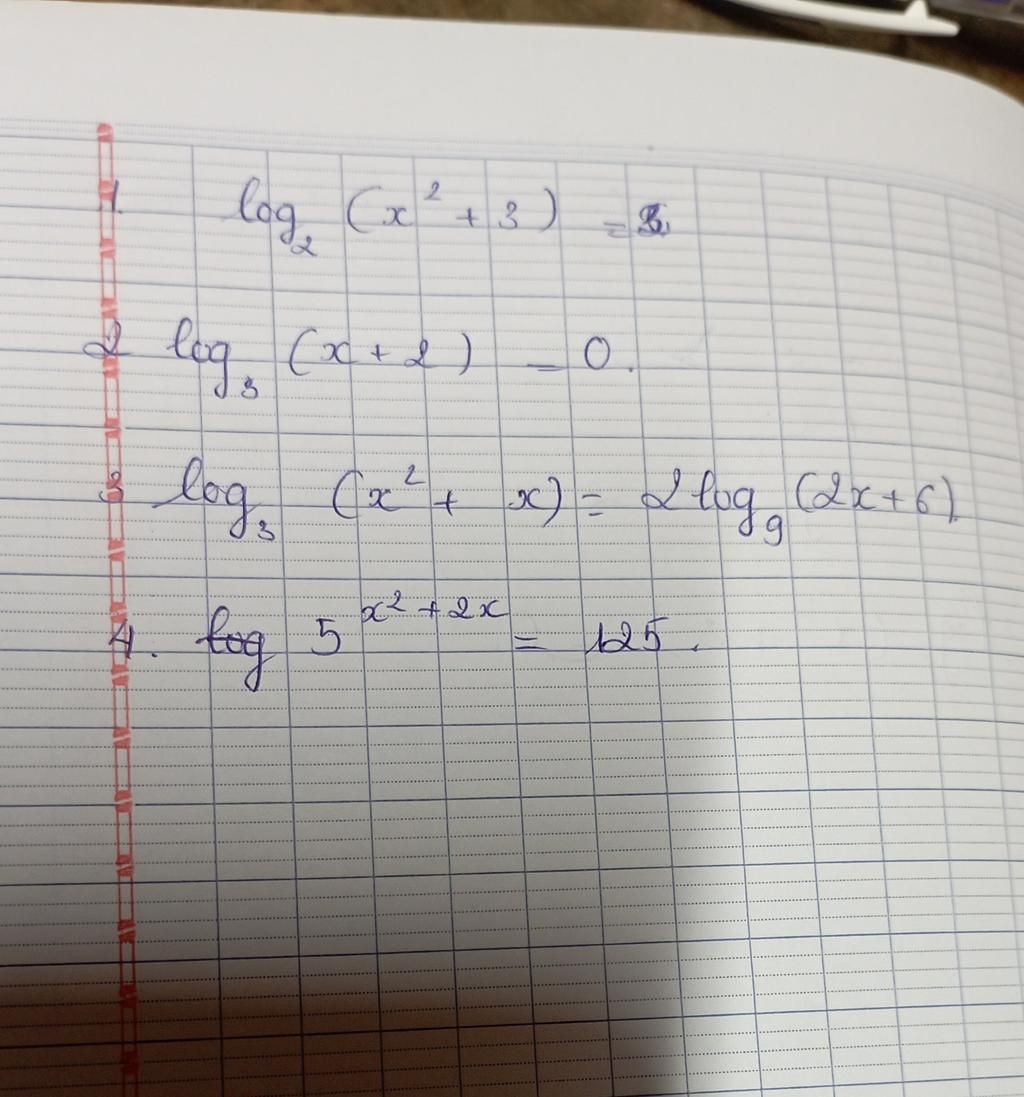 1. log₂ (x² + 3) =
2 log₃ (x + 2) = 0.
3 log₃ (x² + x) = 2 log₉ (2x + 6)
4. 5^(x² + 2x) = 125.